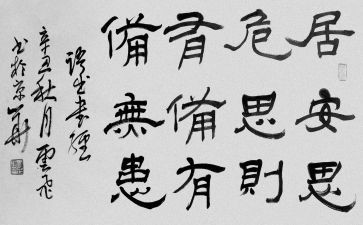 居安思
危思則
有備有
備無患
語出書經
辛丑秋月雲飛
书於京華